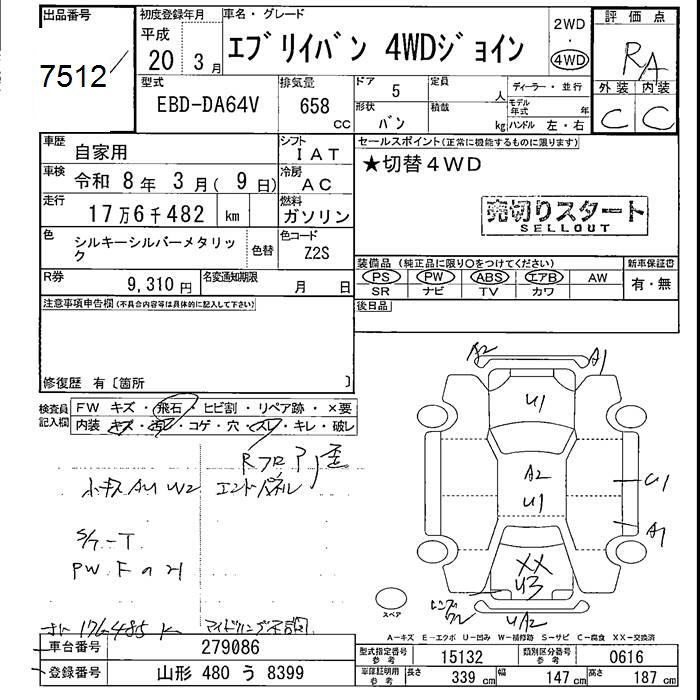 出品番号
7512
初度登録年月
平成
20 3月
車名・グレード
エブリイバン 4WDジョイン
2WD
・
4WD
評価点
RA
外装 内装
C C
型式
EBD-DA64V
排気量
658
CC
ドア 5
形状 バン
定員 人
積載 kg
ディーラー・並行
モデル年式 年
ハンドル 左・右
車歴
自家用
シフト
IAT
車検 令和 8年 3月(9日)
冷房
AC
走行 17万6千482 km
燃料
ガソリン
色 シルキーシルバーメタリック
色替
色コード
Z2S
R券
9,310円
名変通知期限
月 日
セールスポイント(正常に機能するものに限ります)
★切替4WD
売切りスタート
SELLOUT
装備品 (純正品に限り○をつけてください)
PS PW ABS エアB AW
SR ナビ TV カワ
新車保証書
有・無
後日品
注意事項申告欄(不具合内容等は具体的に記入して下さい)
修復歴 有〔箇所 〕
検査員記入欄
FW キズ・飛石・ヒビ割・リペア跡・×要
内装 キズ・汚レ・コゲ・穴・スレ・キレ・破レ
Rフロア歪
エンドパネル
S/T-T
A2
A1
U1
A2
U1
U1
A1
XX
U3
UA2
スペア
A-キズ E-エクボ U-凹み W-補修跡 S-サビ C-腐食 XX-交換済
車台番号 279086
登録番号 山形 480 う 8399
型式指定番号 参考 15132
類別区分番号 参考 0616
車庫証明用 参考
長さ 339 cm
幅 147 cm
高さ 187 cm